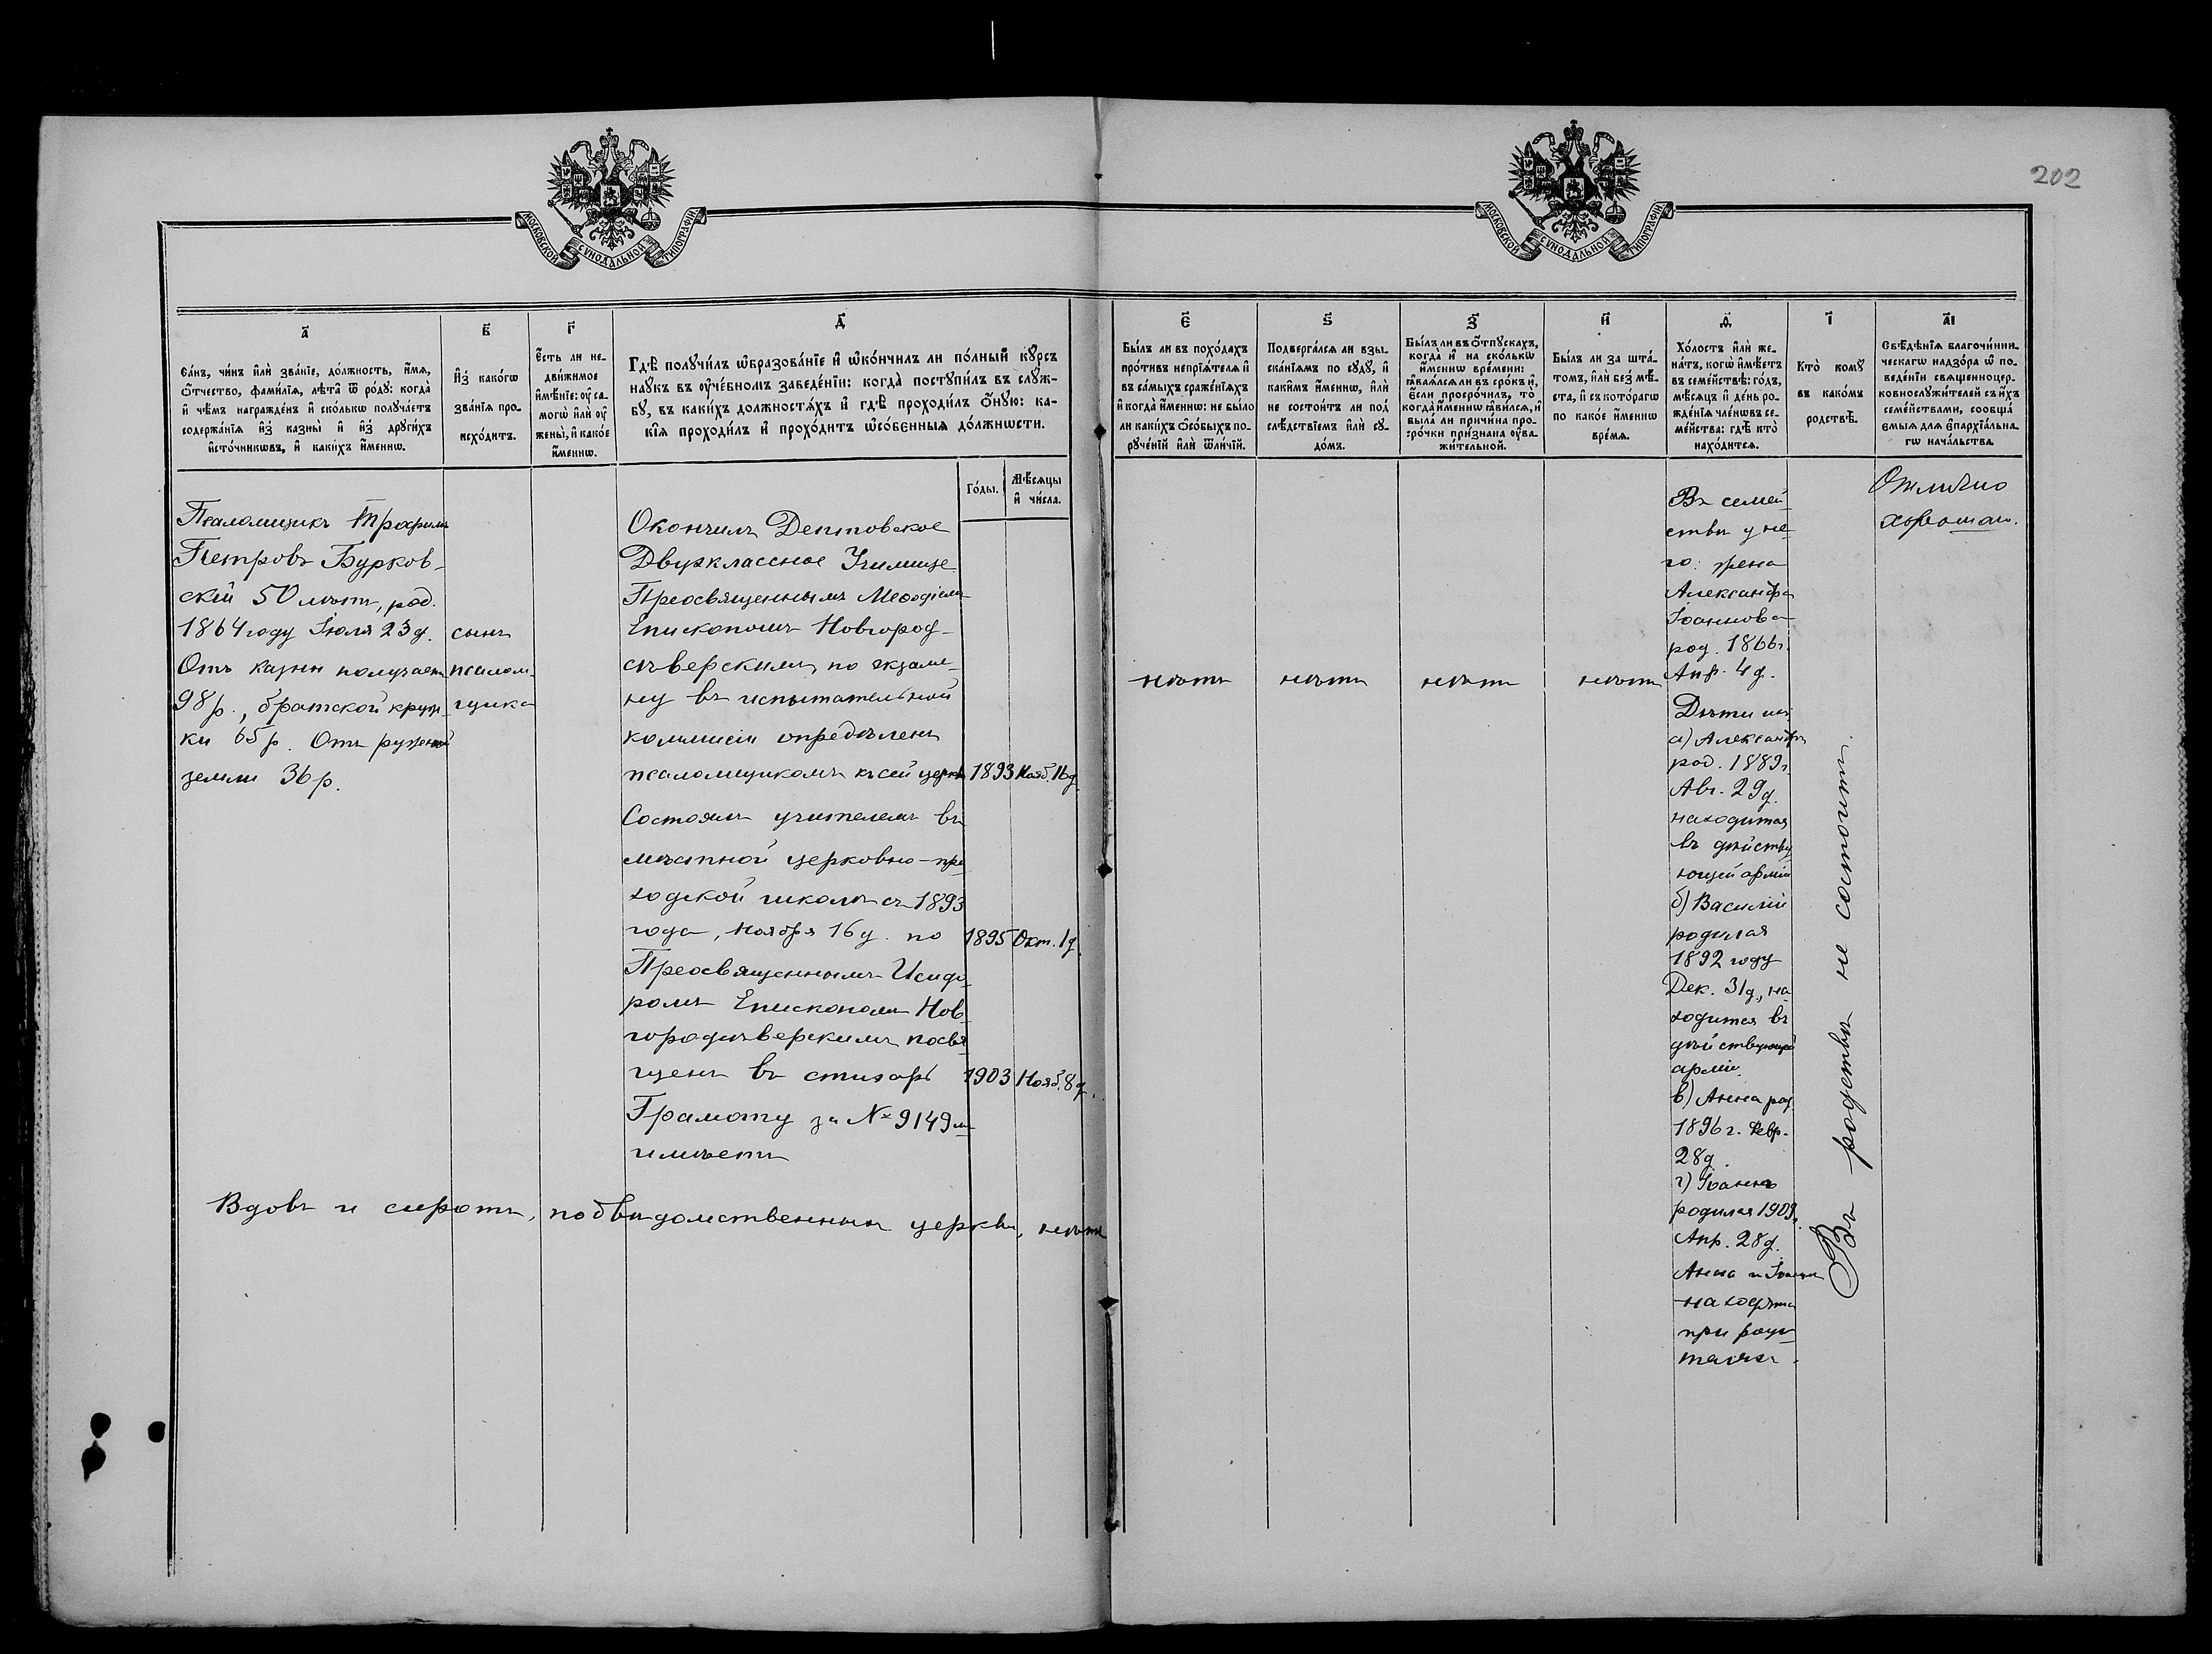 202
МОСКОВСКОЙ СѴНОДАЛЬНОЙ ТИПОГРАФІИ
МОСКОВСКОЙ СѴНОДАЛЬНОЙ ТИПОГРАФІИ
а҃
Са́нъ, чи́нъ и҆лѝ зва́нїе, до́лжность, и҆́мѧ,
ѻ҆́тчество, фами́лїѧ, лѣ́та ѿ ро́дꙋ: когда̀
и҆ чѣ́мъ награжде́нъ и҆ ско́лькѡ полꙋча́етъ
содержа́нїѧ и҆з̾ казны̀ и҆ и҆з̾ дрꙋги́хъ
и҆сто́чникѡвъ, и҆ каки́хъ и҆́меннѡ.
в҃
И҆з̾ како́гѡ
зва́нїѧ про-
исхо́дитъ.
г҃
Є҆́сть ли не-
дви́жимое
и҆мѣ́нїе: ᲂу҆ са-
могѡ̀ и҆лѝ ᲂу҆
жены̀, и҆ како́е
и҆́меннѡ.
д҃
Гдѣ̀ полꙋчи́лъ ѡ҆бразова́нїе и҆ ѡ҆ко́нчилъ ли по́лный кꙋ́рсъ
наꙋ́къ въ ᲂу҆че́бномъ заведе́нїи: когда̀ постꙋпи́лъ въ слꙋ́ж-
бꙋ, въ каки́хъ должностѧ́хъ и҆ гдѣ̀ проходи́лъ ѻ҆́нꙋю: ка-
кі́ѧ проходи́лъ и҆ прохо́дитъ ѡ҆со́бєнныѧ до́лжнѡсти.
Го́ды.
Мѣ́сѧцы
и҆ чи́сла.
є҃
Бы́лъ ли въ похо́дахъ
про́тивъ непрїѧ́телѧ и҆
въ са́мыхъ сраже́нїѧхъ
и҆ когда̀ и҆́меннѡ: не бы́ло
ли каки́хъ ѻ҆со́быхъ по-
рꙋче́нїй и҆лѝ ѿли́чїй.
ѕ҃
Подверга́лсѧ ли взы-
ска́нїѧмъ по сꙋдꙋ̀, и҆
каки́мъ и҆́меннѡ, и҆лѝ
не состои́тъ ли под̾
слѣ́дствїемъ и҆лѝ сꙋ-
до́мъ.
з҃
Бы́лъ ли въ ѻ҆́тпꙋскахъ,
когда̀ и҆ на ско́лькѡ
и҆́меннѡ вре́мени:
ꙗ҆влѧ́лсѧ ли въ сро́къ и҆,
є҆́сли просро́чилъ, то̀
когда̀ и҆́меннѡ ꙗ҆ви́лсѧ, и҆
была̀ ли причи́на про-
сро́чки при́знана ᲂу҆ва-
жи́тельной.
и҃
Бы́лъ ли за шта́-
томъ, и҆лѝ без̾ мѣ́-
ста, и҆ съ кото́рагѡ
по како́е и҆́меннѡ
вре́мѧ.
ѳ҃
Хо́лостъ и҆лѝ же-
на́тъ, когѡ̀ и҆мѣ́етъ
въ семе́йствѣ: го́дъ,
мѣ́сѧцъ и҆ де́нь ро-
жде́нїѧ чле́нѡвъ се-
ме́йства: гдѣ̀ кто̀
нахо́дитсѧ.
і҃
Кто̀ комꙋ̀
въ како́мъ
родствѣ̀.
а҃і
Свѣ́дѣнїѧ благочи́нни-
ческагѡ надзо́ра ѡ҆ по-
веде́нїи свѧще́нноцер-
ковнослꙋжи́телей съ и҆́хъ
семе́йствами, соѡбща́-
ємыѧ длѧ є҆пархїа́льна-
гѡ нача́льства
Псаломщикъ Трофимъ
Петровъ Бурков-
скій 50 лѣтъ, род.
1864 году Іюля 23 д.
Отъ казны получаетъ
98 р., братской круж-
ки 65 р. Отъ ружной
земли 36 р.
сынъ
псалом-
щика
Окончилъ Дептовское
Двухклассное Училище
Преосвященнымъ Меѳодіемъ
Епископомъ Новгород-
сѣверскимъ, по экзаме-
ну въ испытательной
коммисіи опредѣленъ
псаломщикомъ къ сей церкви 1893 Нояб. 16 д.
Состоялъ учителемъ въ
мѣстной церковно-при-
ходской школѣ съ 1893
года, Ноября 16 д. по 1895 Окт. 1 д.
Преосвященнымъ Исидо-
ромъ Епископомъ Нов-
городсѣверскимъ посвя-
щенъ въ стихарь 1903 Нояб. 8 д.
Грамоту за № 9149 мъ
имѣетъ
Вдовъ и сиротъ, подвѣдомственныхъ церкви, нѣтъ
нѣтъ
нѣтъ
нѣтъ
нѣтъ
Въ семей-
ствѣ у не-
го: жена
Александра
Іоаннова
род. 1866 г.
Апр. 4 д.
Дѣти ихъ
а) Александръ
род. 1889 г.
Авг. 29 д.
находится
въ дѣйству-
ющей арміи
б) Василій
родился
1892 году
Дек. 31 д., на-
ходится въ
дѣйствующей
арміи.
в) Анна род.
1896 г. Февр.
28 д.
г) Іоаннъ
родился 1909 г.
Апр. 28 д.
Анна и Іоаннъ
находятся
при роди-
теляхъ.
Въ родствѣ не состоитъ.
Отлично
хорошаго.